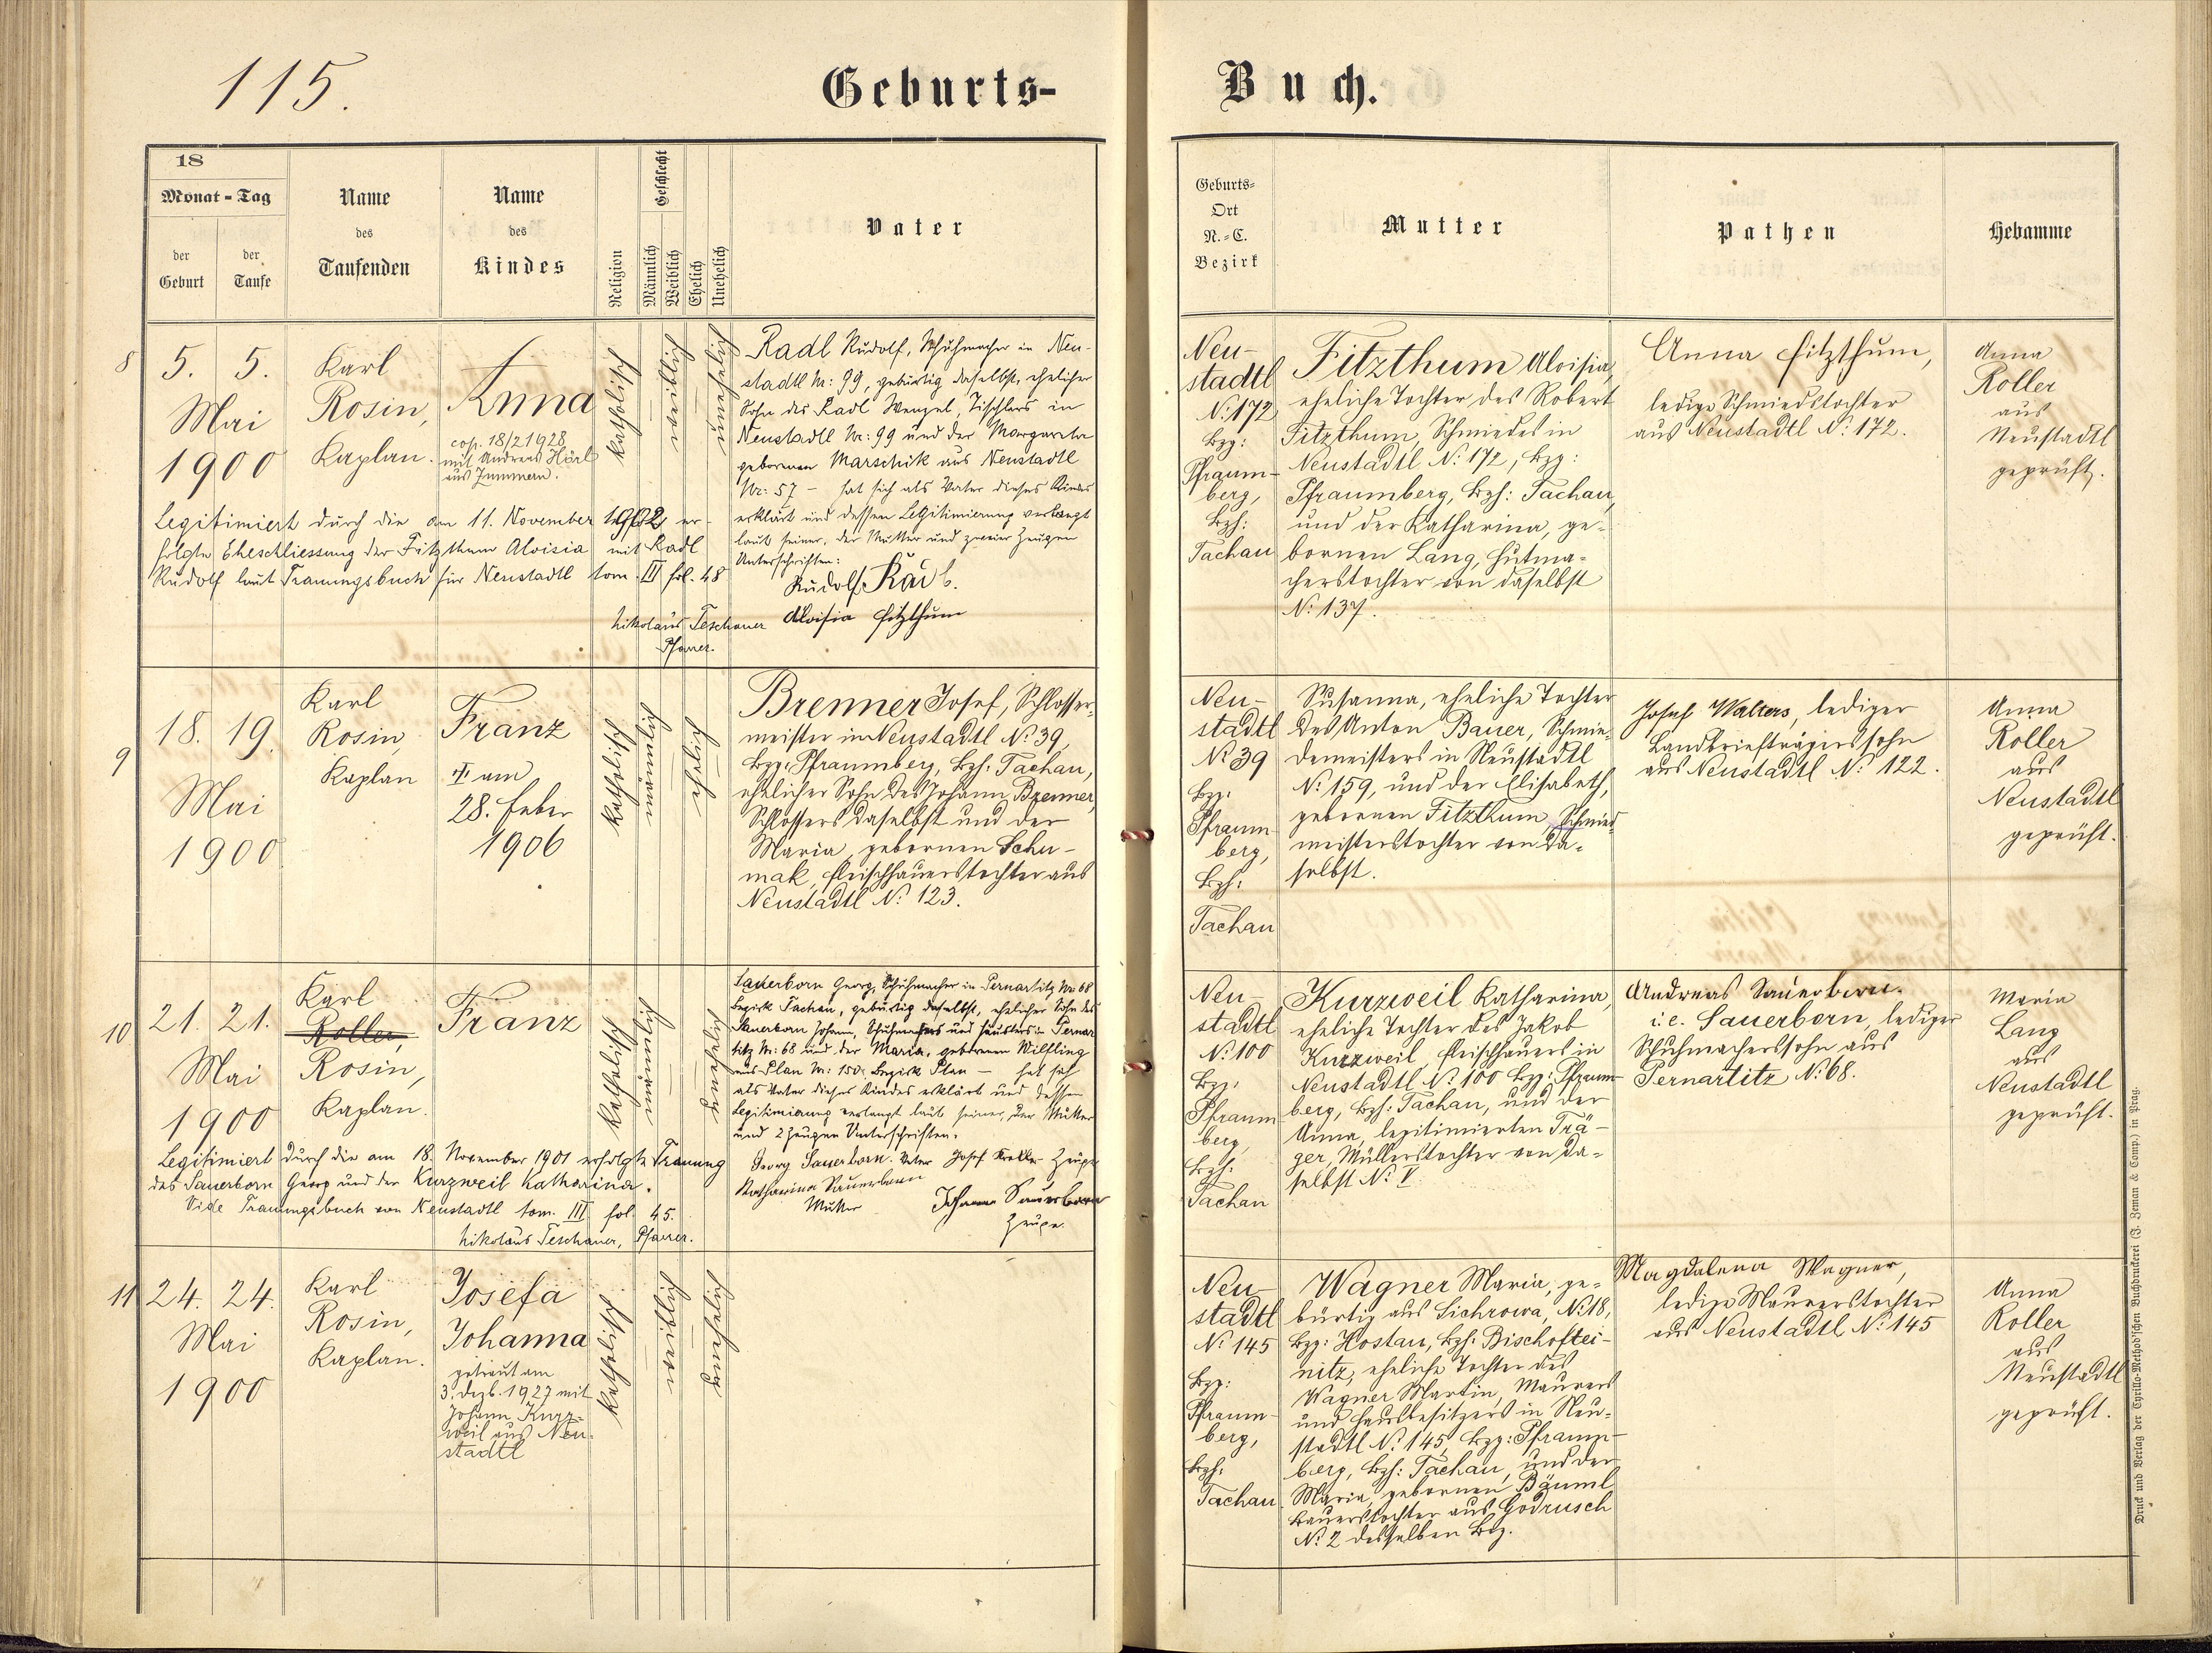 115.
Geburts-
Buch.
18
Monat - Tag
der Geburt
der Taufe
Name des Taufenden
Name des Kindes
Religion
Geschlecht
Männlich
Weiblich
Ehelich
Unehelich
Vater
Geburts-
Ort
N.-C.
Bezirk
Mutter
Pathen
Hebamme
8
5. 5.
Mai
1900
Karl
Rosin,
Kaplan.
Anna
cop. 18/2 1928
mit Andreas Hörl
aus Zummern.
katholisch
weiblich
unehelich
Radl Rudolf, Schuhmacher in Neu-
stadtl Nr: 99, gebürtig daselbst, ehelicher
Sohn des Radl Wenzel, Tischlers in
Neustadtl Nr: 99 und der Margareta
gebornen Marschik aus Neustadtl
Nr: 57 – hat sich als Vater dieses Kindes
erklärt und dessen Legitimierung verlangt
laut seiner, der Mutter und zweier Zeugen
Unterschriften:
Rudolf Radl.
Aloisia Fitzthum
Legitimiert durch die am 11. November 1902 er-
folgte Eheschliessung der Fitzthum Aloisia mit Radl
Rudolf laut Trauungsbuch für Neustadtl tom III fol. 48
Nikolaus Teschauer
Pfarrer.
Neu-
stadtl
N: 172
Bzg:
Pfraum-
berg,
Bzh:
Tachau
Fitzthum Aloisia,
eheliche Tochter des Robert
Fitzthum, Schmiedes in
Neustadtl N: 172, Bzg:
Pfraumberg, Bzh: Tachau,
und der Katharina, ge-
bornen Lang, Hutma-
cherstochter von daselbst
N: 137.
Anna Fitzthum,
ledige Schmiedstochter
aus Neustadtl N: 172.
Anna
Roller
aus
Neustadtl
geprüft.
9
18. 19.
Mai
1900
Karl
Rosin,
Kaplan
Franz
† am
28. Feber
1906
katholisch
männlich
ehelich
Brenner Josef, Schlosser-
meister in Neustadtl N: 39,
Bzg: Pfraumberg, Bzh: Tachau,
ehelicher Sohn des Johann Brenner,
Schlossers daselbst und der
Maria, gebornen Schu-
mak, Fleischhauerstochter aus
Neustadtl N: 123.
Neu-
stadtl
N: 39
Bzg:
Pfraum-
berg,
Bzh:
Tachau
Susanna, eheliche Tochter
des Anton Bauer, Schmie-
demeisters in Neustadtl
N: 159, und der Elisabeth,
gebornen Fitzthum, Schmied-
meisterstochter von da-
selbst.
Josef Walters, lediger
Landbriefträgerssohn
aus Neustadtl N: 122.
Anna
Roller
aus
Neustadtl
geprüft.
10
21. 21.
Mai
1900
Karl
Roller,
Rosin,
Kaplan.
Franz
katholisch
männlich
unehelich
Sauerborn Georg, Schuhmacher in Pernartitz Nr: 68
Bezirk Tachau, gebürtig daselbst, ehelicher Sohn des
Sauerborn Johann, Schuhmachers und Häuslers in Pernar
titz Nr: 68 und der Maria, gebornen Wilfling
aus Plan Nr: 150. Bezirk Plan – hat sich
als Vater dieses Kindes erklärt und dessen
Legitimierung verlangt laut seiner, der Mutter
und 2 Zeugen Unterschriften.
Georg Sauerborn. Vater Josef Zeuge
Katharina Sauerborn
Mutter
Johann Sauerborn
Zeuge.
Legitimiert durch die am 18. November 1901 erfolgte Trauung
des Sauerborn Georg und der Kurzweil Katharina.
Vide Trauungsbuch von Neustadtl tom. III fol. 45.
Nikolaus Teschauer, Pfarrer.
Neu-
stadtl
N: 100
Bzg:
Pfraum
berg,
Bzh:
Tachau
Kurzweil Katharina,
eheliche Tochter des Jakob
Kurzweil, Fleischhauers in
Neustadtl N: 100 Bzg: Pfraum-
berg, Bzh: Tachau, und der
Anna, legitimierten Trä-
ger, Müllerstochter von da-
selbst N: V.
Andreas Sauerborn.
i.e. Sauerborn, lediger
Schuhmacherssohn aus
Pernartitz N: 68.
Maria
Lang
aus
Neustadtl
geprüft.
11
24. 24.
Mai
1900
Karl
Rosin,
Kaplan.
Josefa
Johanna
getraut am
3. Dezb. 1927 mit
Johann Kurz-
weil aus Neu-
stadtl
katholisch
weiblich
unehelich
Neu-
stadtl
N: 145
Bzg:
Pfraum-
berg,
Bzh:
Tachau
Wagner Maria, ge-
bürtig aus Sichrowa, N: 18,
Bzg: Hostau, Bzh: Bischoftei-
nitz, eheliche Tochter des
Wagner Martin, Maurers
und Hausbesitzers in Neu-
stadtl N: 145, Bzg: Pfraum-
berg, Bzh: Tachau, und der
Maria, gebornen Bäuml
Bauerstochter aus Godrusch
N: 2 desselben Bez.
Magdalena Wagner,
ledige Maurerstochter
aus Neustadtl N: 145
Anna
Roller
aus
Neustadtl
geprüft.
Druck und Verlag der Cyrillo-Method'schen Buchdruckerei (J. Zeman & Comp.) in Prag.